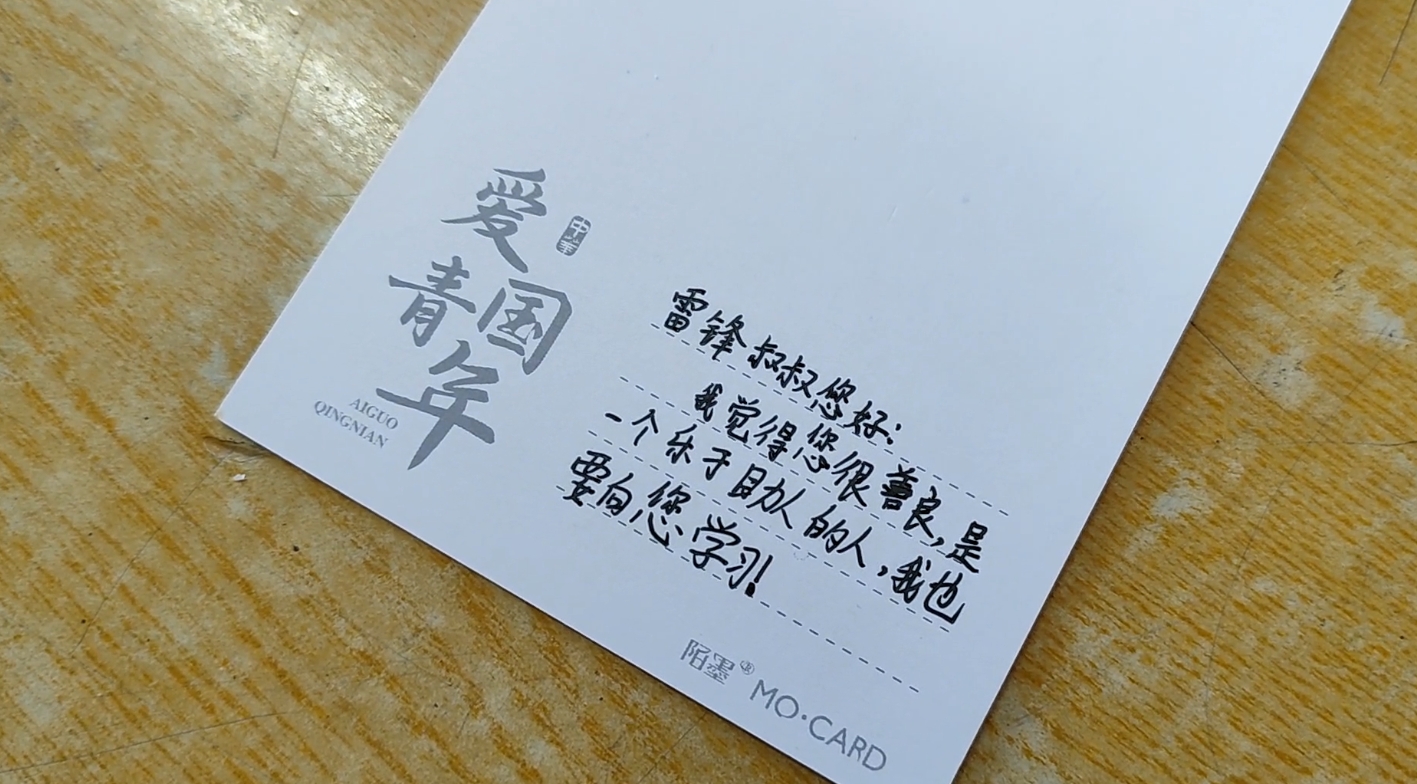 爱国
青年
中华
AIGUO
QINGNIAN
雷锋叔叔您好:
我觉得您很善良,是
一个乐于助人的人,我也
要向您学习!
陌墨®
MO·CARD